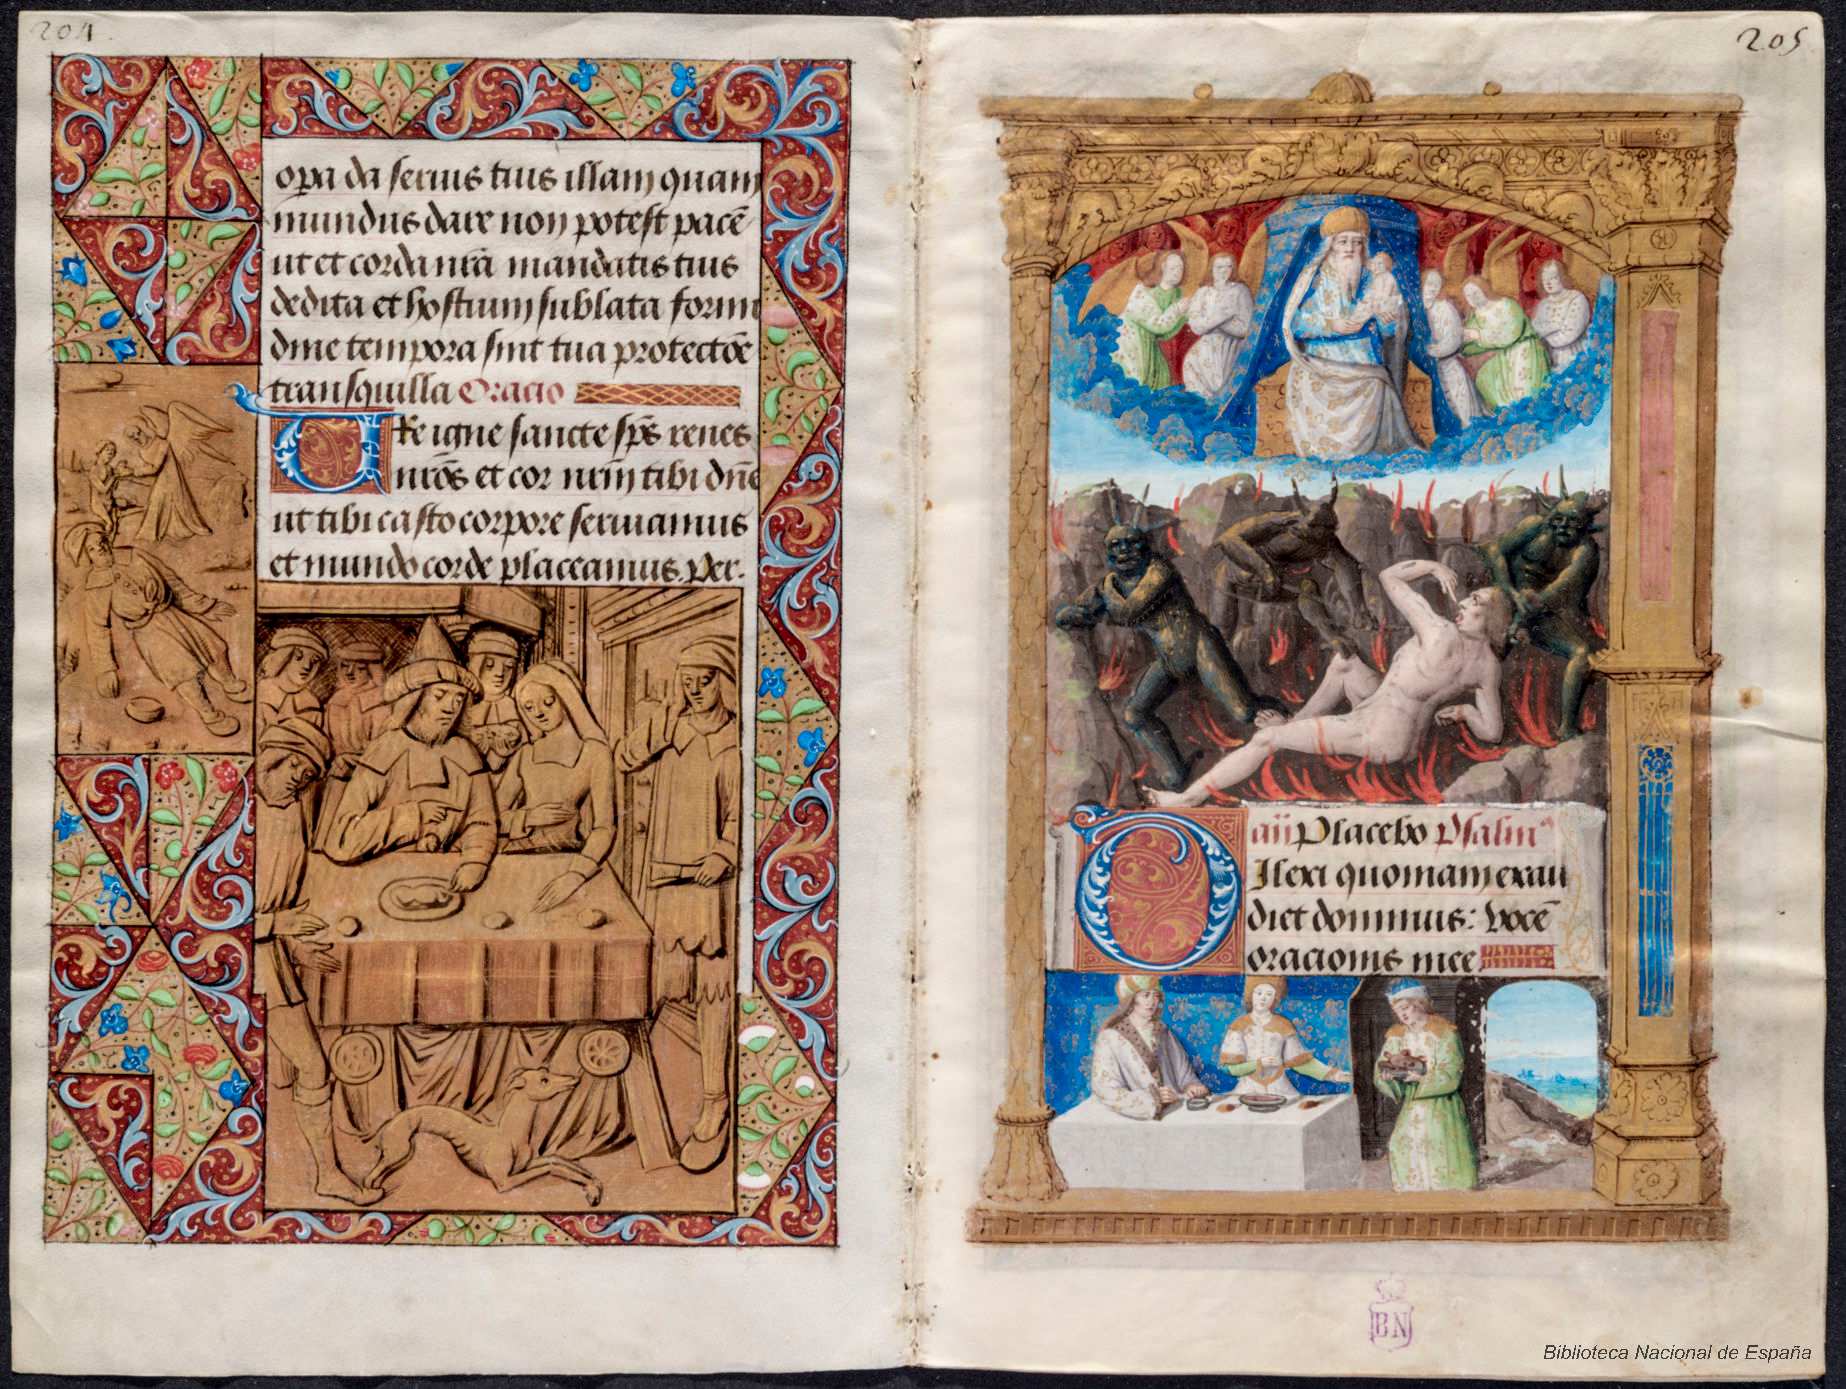 204.
opa da servis tuis illam quam
mundus dare non potest pacē
ut et corda nr̄a mandatis tuis
dedita et hostium sublata formi
dine tempora sint tua protectōe
transquilla Oracio
Ure igne sancte sp̄s renes
nr̄os et cor nr̄m tibi dn̄e
ut tibi casto corpore serviamus
et mundo corde placeamus. Per.
205
an̄ Placebo Psalm⁹
Dilexi quoniam exau
diet dominus: vocē
oracionis mee
BN
Biblioteca Nacional de España